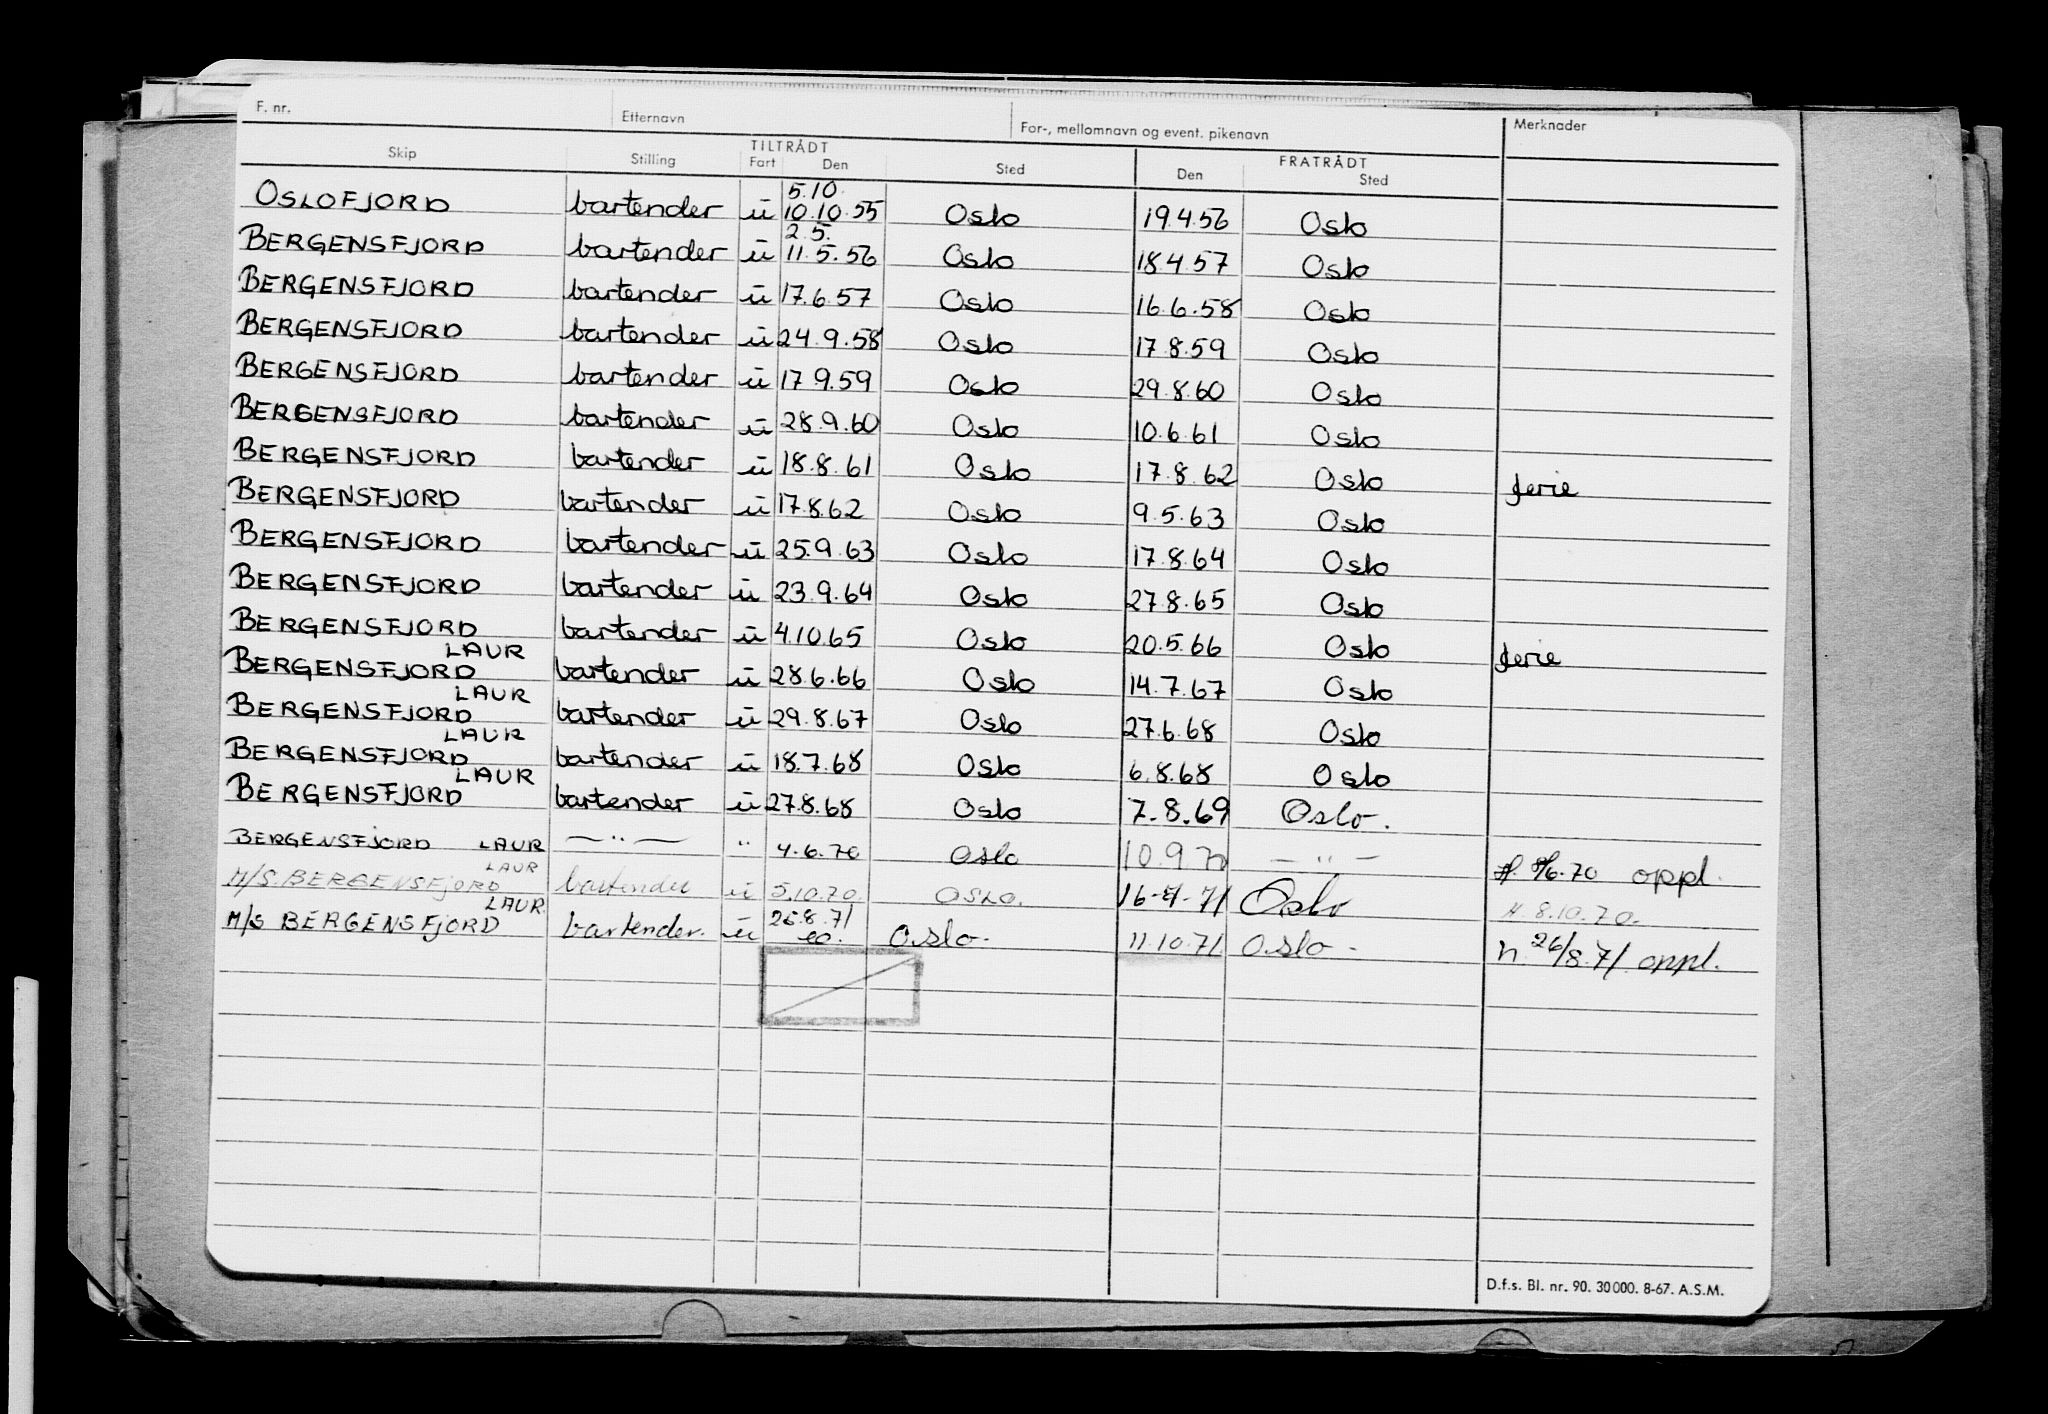 F. nr. Etternavn For-, mellomnavn og event. pikenavn Merknader
TILTRÅDT FRATRÅDT
Skip Stilling Fart Den Sted Den Sted
5.10.
OSLOFJORD bartender u 10.10.55 Oslo 19.4.56 Oslo
2.5.
BERGENSFJORD bartender u 11.5.56 Oslo 18.4.57 Oslo
BERGENSFJORD bartender u 17.6.57 Oslo 16.6.58 Oslo
BERGENSFJORD bartender u 24.9.58 Oslo 17.8.59 Oslo
BERGENSFJORD bartender u 17.9.59 Oslo 29.8.60 Oslo
BERGENSFJORD bartender u 28.9.60 Oslo 10.6.61 Oslo
BERGENSFJORD bartender u 18.8.61 Oslo 17.8.62 Oslo ferie
BERGENSFJORD bartender u 17.8.62 Oslo 9.5.63 Oslo
BERGENSFJORD bartender u 25.9.63 Oslo 17.8.64 Oslo
BERGENSFJORD bartender u 23.9.64 Oslo 27.8.65 Oslo
BERGENSFJORD bartender u 4.10.65 Oslo 20.5.66 Oslo ferie
LAUR
BERGENSFJORD bartender u 28.6.66 Oslo 14.7.67 Oslo
LAUR
BERGENSFJORD bartender u 29.8.67 Oslo 27.6.68 Oslo
LAUR
BERGENSFJORD bartender u 18.7.68 Oslo 6.8.68 Oslo
LAUR
BERGENSFJORD bartender u 27.8.68 Oslo 7.8.69 Oslo.
BERGENSFJORD LAUR — " — " 4.6.70 Oslo 10.9.70 — " — 8/6.70 oppl.
LAUR
M/S. BERGENSFJORD bartender u 5.10.70. OSLO. 16-7-71 Oslo H. 8.10.70.
LAUR.
M/S BERGENSFJORD bartender. u 25.8.71 Oslo. 11.10.71 Oslo. h. 26/8.71 oppl.
D.f.s. Bl. nr. 90. 30000. 8-67. A.S.M.